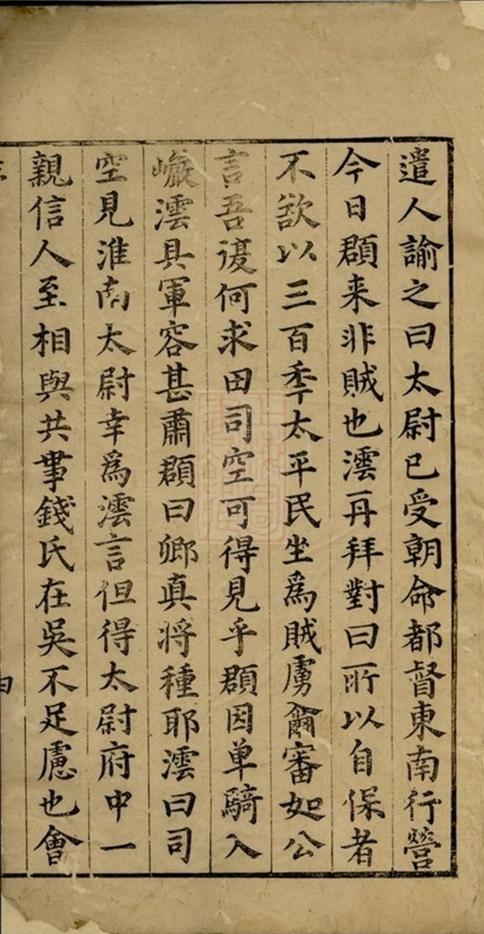 遣人諭之曰太尉已受朝命都督東南行營
今日頵来非賊也澐再拜對曰所以自保者
不欲以三百秊太平民坐爲賊虜爾審如公
言吾復何求田司空可得見乎頵因单騎入
巘澐具軍容甚肅頵曰卿真将種耶澐曰司
空見淮南太尉幸爲澐言但得太尉府中一
親信人至相與共事錢氏在吳不足慮也會